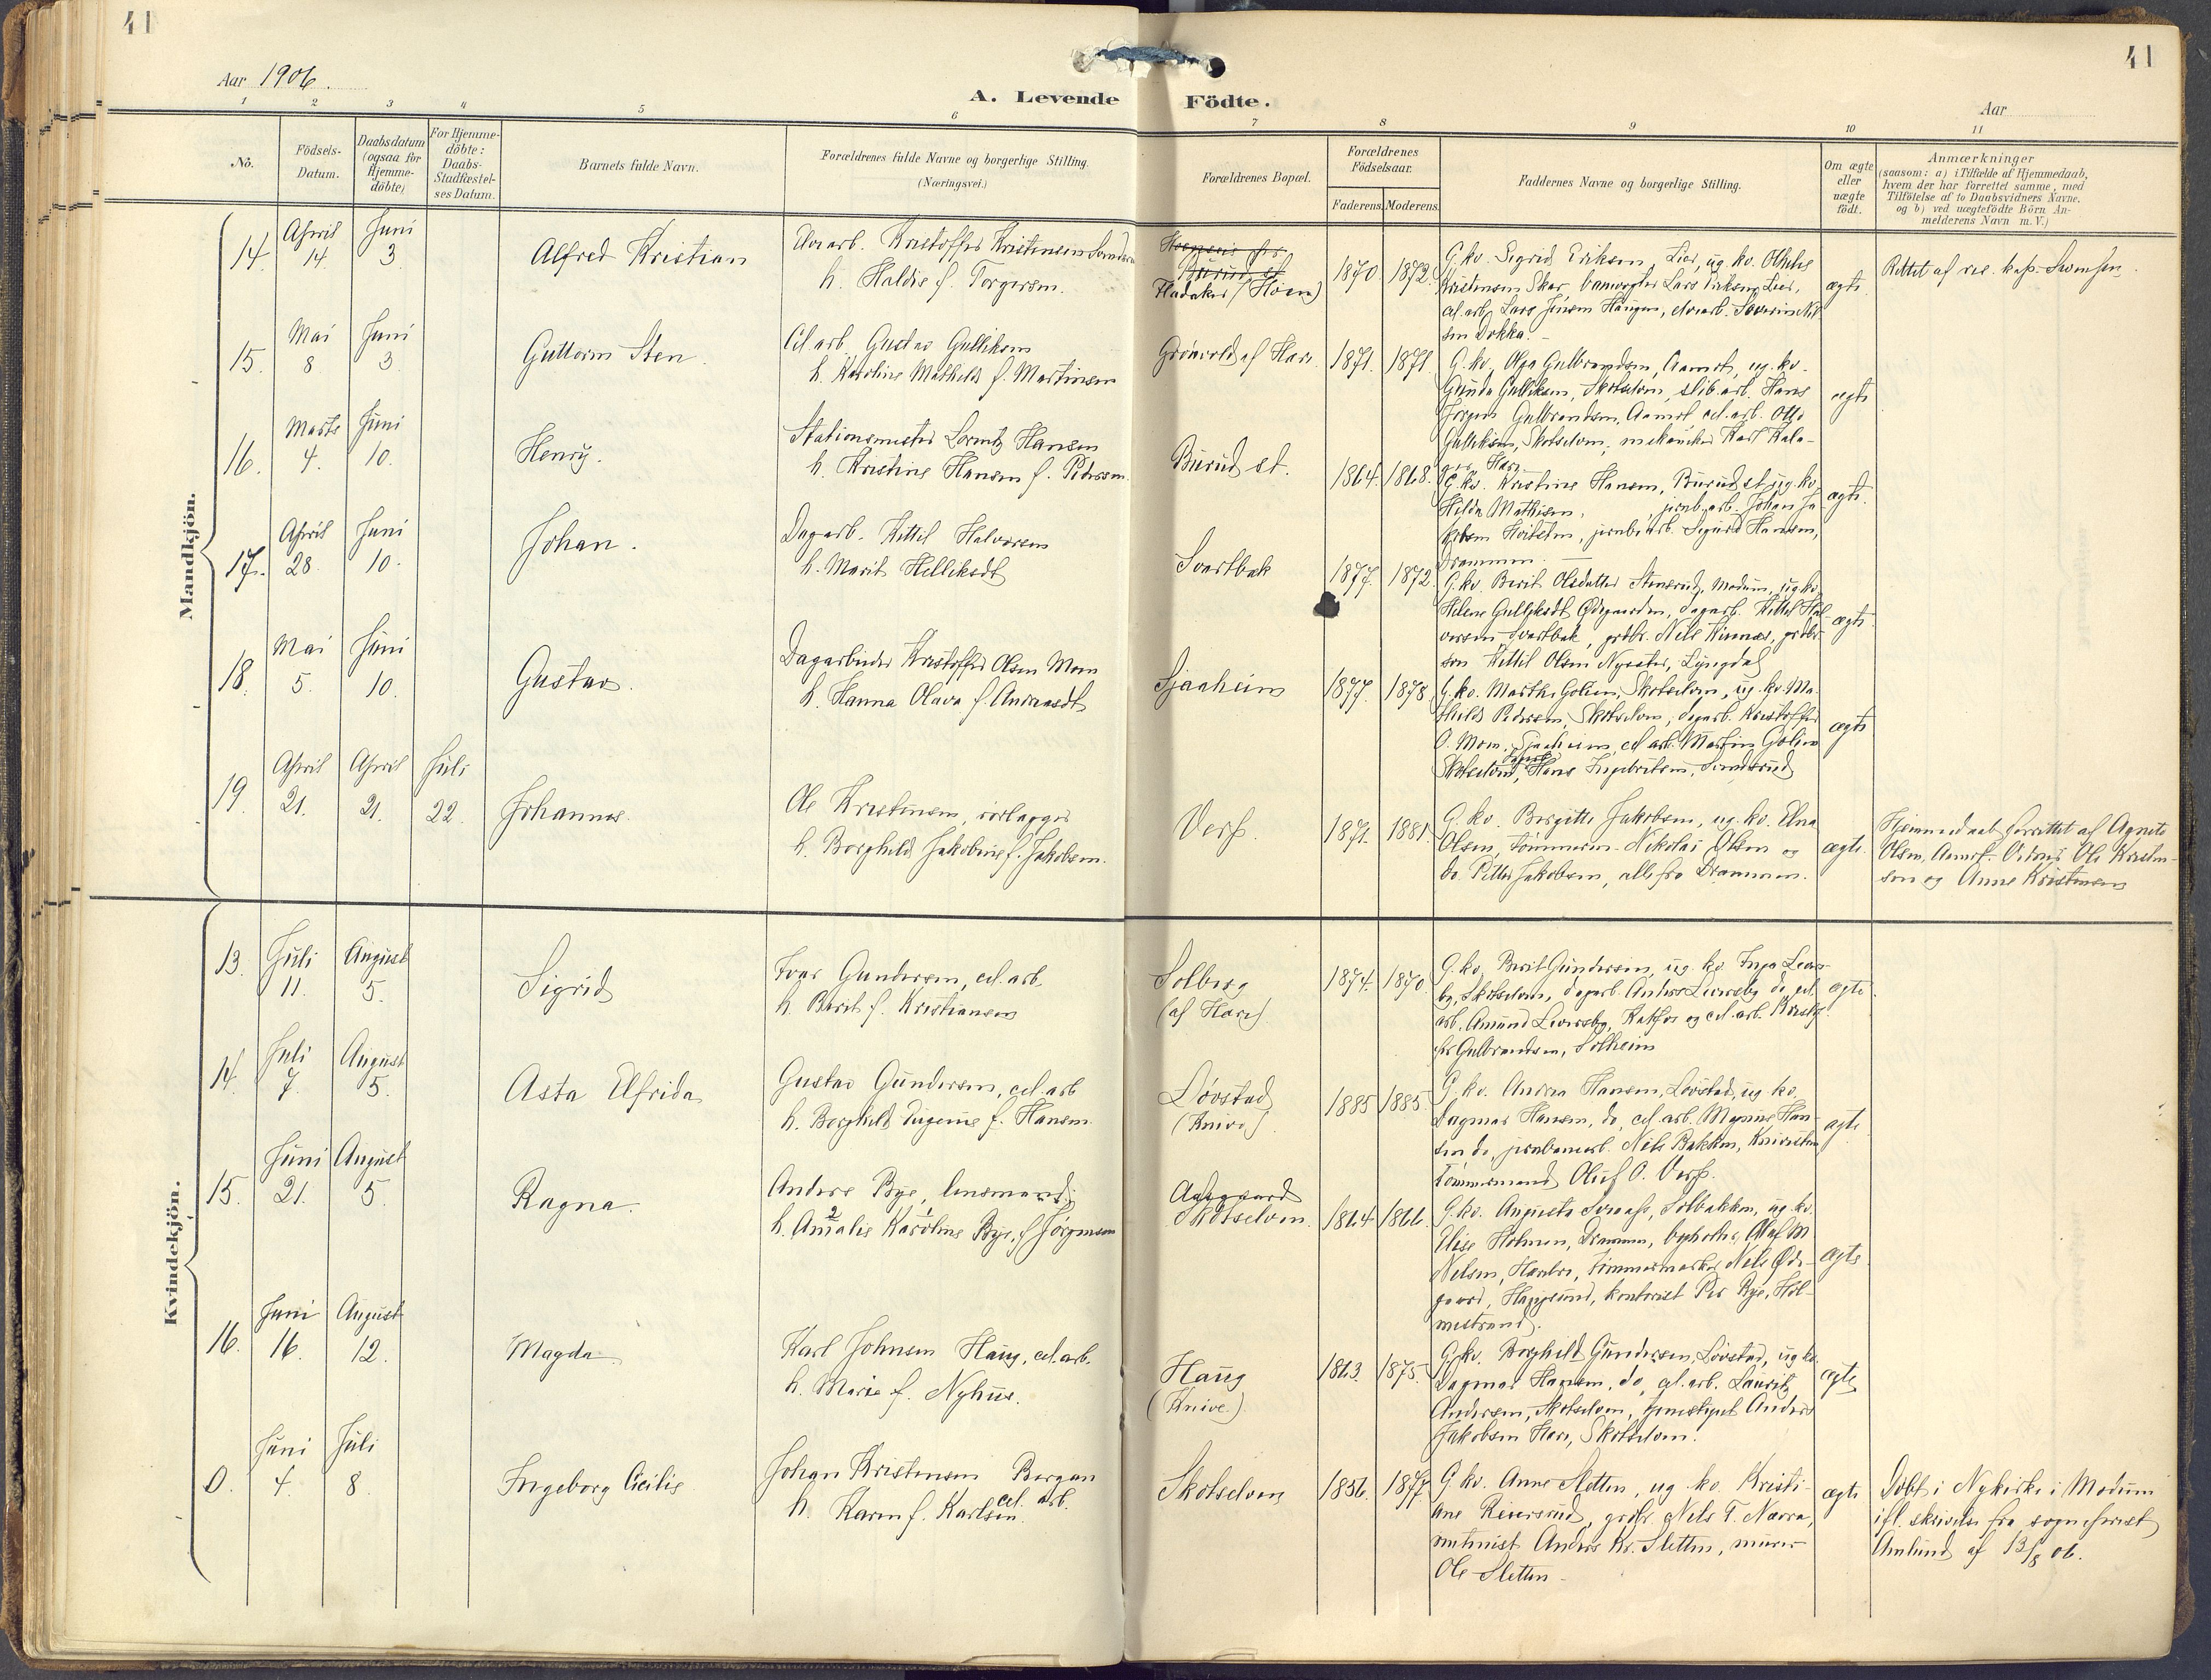 41
41
Aar 1906.
A. Levende Födte.
Aar
1 2 3 4 5 6 7 8 9 10 11
No.
Födsels-
Datum.
Daabsdatum
(ogsaa for
Hjemme-
döbte)
For Hjemme-
döbte:
Daabs-
Stadfæstel-
ses Datum.
Barnets fulde Navn.
Forældrenes fulde Navne og borgerlige Stilling.
(Næringsvei.)
Forældrenes Bopæl.
Forældrenes
Födselsaar.
Faderens. Moderens.
Faddernes Navne og borgerlige Stilling.
Om ægte
eller
uægte
födt.
Anmærkninger
(saasom: a) i Tilfælde af Hjemmedaab,
hvem der har forrettet samme, med
Tilföielse af to Daabsvidners Navne.
og b) ved uægtefödte Börn An-
melderens Navn m.V.)
Mandkjön.
14. April 14. Juni 3.
Alfred Kristian
Kristoffer Kristensen
h. Haldis f. Torgersen.
Fladaker (Hoen)
1870 1872.
G. kv. Sigrid Eriksen, Lier, ug. kv.
Kristensen Skar, banevogter Lars Eriksen Lier,
cel. arb. Lars Jensen Haugen,
sen Dokka.
ægte
Rettet af res. kap. Svensen.
15. Mai 8 Juni 3.
Guttorm Sten.
Cel. arb. Gustav Gulliksen
h. Karoline Mathilde f. Martinsen
Grönvold af Hare
1871. 1871.
G. kv. Olga Gulbrandsen, Aamot, ug. kv.
Gunda Gulliksen, Skotselven, slib. arb. Hans
Jörgen Gulbrandsen, Aamot cel. arb. Otto
Gulliksen, Skotselven, mekaniker Karl
ægte
16. Marts 4. Juni 10.
Henry.
Stationsmester Lorentz Hansen
h. Kristine Hansen f. Pedersen.
Burud st.
1864. 1868.
G. kv. Kristine Hansen, Burud st, ug. kv.
Hilda Mathisen, jernb. arb. Johan Ja-
kobsen, jernb. arb. Sigurd Hansen,
Drammen.
ægte.
17. April 28. Juni 10.
Johan.
Dagarb. Kittil Halvorsen
h. Marit Helliksdt
Svartbak
1877. 1872.
G. kv. Berit Olsdatter Stensrud, Modum, ug. kv.
Helene Gulliksdt Ødegaarden, dagarb. Kittil Hal-
vorsen Svartbak, grdbr. Nils, grdbr-
sön Kittil Olsen, Lyngdal
ægte
18. Mai 5. Juni 10.
Gustav.
Dagarbeider Kristoffer Olsen Moen
h. Hanna Olava f. Andreasdt
Sjaaheim
1877. 1878
G. kv. Marthe Golien, Skotselven, ug. kv. Ma-
thilde Pedersen, Skotselven, dagarb. Kristoffer
O. Moen, Sjaaheim, cel. arb. Martin Golien
Skotselven, Hans Ingebretsen,
ægte
19. April 21. April 21. Juli 22.
Johannes.
Ole Kristensen, rörlægger
h. Borghild Jakobine f. Jakobsen.
Verp.
1871. 1881.
G. kv. Birgitte Jakobsen, ug. kv. Elna
Olsen, tömmerm. Nikolai Olsen og
do Petter Jakobsen, alle fra Drammen.
ægte.
Hjemmedaab forrettet af Agnete
Olsen, Aamot. Vidner Ole Kristen-
sen og Anne Kristensen
Kvindekjön.
13. Juli 11. August 5.
Sigrid
Ivar Gundersen, cel. arb.
h. Berit f. Kristiansen
Solberg
(af Hare)
1874. 1870.
G. kv. Berit Gundersen, ug. kv. Inga Leers-
by, Skotselven, dagarb. Anders Leersby do, cel.
arb. Amund Leersby, og cel. arb. Kristof-
fer Gulbrandsen, Solheim
ægte
14. Juli 7. August 5.
Asta Elfrida
Gustav Gundersen, cel. arb
h. Borghild Eugenie f. Hansen.
Lövstad
(Knive)
1885 1885.
G. kv. Andrea Hansen, Lövstad, ug. kv.
Dagmar Hansen, do, cel. arb. Magnus Han-
sen do, jernbanearb. Nils Bakken,
Tömmermand Oluf O. Verp.
ægte
15. Juni 21. August 5.
Ragna.
Anders Bye, lensmand;
h. Amalie Karoline Bye, f. Jörgensen
Aasgaard
Skotselven.
1864 1866.
G. kv. Augusta, Solbakken, ug. kv.
Elise Holmen, Drammen, Olaf M.
Nilsen,, tömmermester Nils Øde-
gaard, Haugsund, kontorist Per Bye, Hol-
mestrand.
ægte
16. Juni 16. August 12.
Magda
Karl Johnsen Haug, cel. arb.
h. Marie f. Nyhus.
Haug
(Knive.)
1863. 1875.
G. kv. Borghild Gundersen, Lövstad, ug. kv.
Dagmar Hansen, do, cel. arb. Lauritz
Andersen, Skotselven, Anders
Jakobsen Hare, Skotselven.
ægte
0. Juni 4. Juli 8.
Ingeborg Cecilie
Johan Kristensen Bergan
cel. arb.
h. Karen f. Karlsen.
Skotselven
1856. 1877.
G. kv. Anne Sletten, ug. kv. Kristi-
ane, grdbr. Nils T. Nærra,
Anders Kr. Sletten, murer
Ole Sletten
ægte
Döbt i Nykirke i Modum
ifl. skrivelse fra sogneprest
Amlund af 13/8 06.